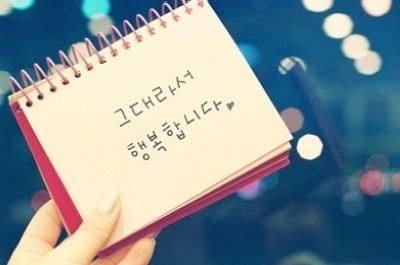 그대라서
행복합니다♥